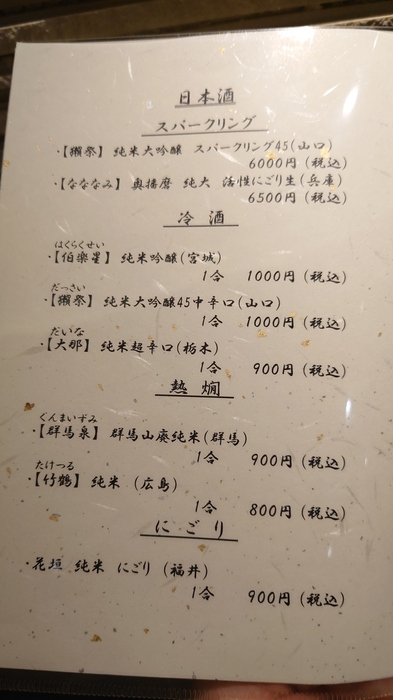 日本酒
スパークリング
・【獺祭】 純米大吟醸 スパークリング45(山口)
6000円(税込)
・【なななみ】 奥播磨 純大 活性にごり生(兵庫)
6500円(税込)
冷酒
はくらくせい
・【伯楽星】 純米吟醸(宮城)
1合 1000円(税込)
だっさい
・【獺祭】 純米大吟醸45中辛口(山口)
1合 1000円(税込)
だいな
・【大那】 純米超辛口(栃木)
1合 900円(税込)
熱燗
ぐんまいずみ
・【群馬泉】 群馬山廃純米(群馬)
1合 900円(税込)
たけつる
・【竹鶴】 純米 (広島)
1合 800円(税込)
にごり
・花垣 純米 にごり (福井)
1合 900円(税込)